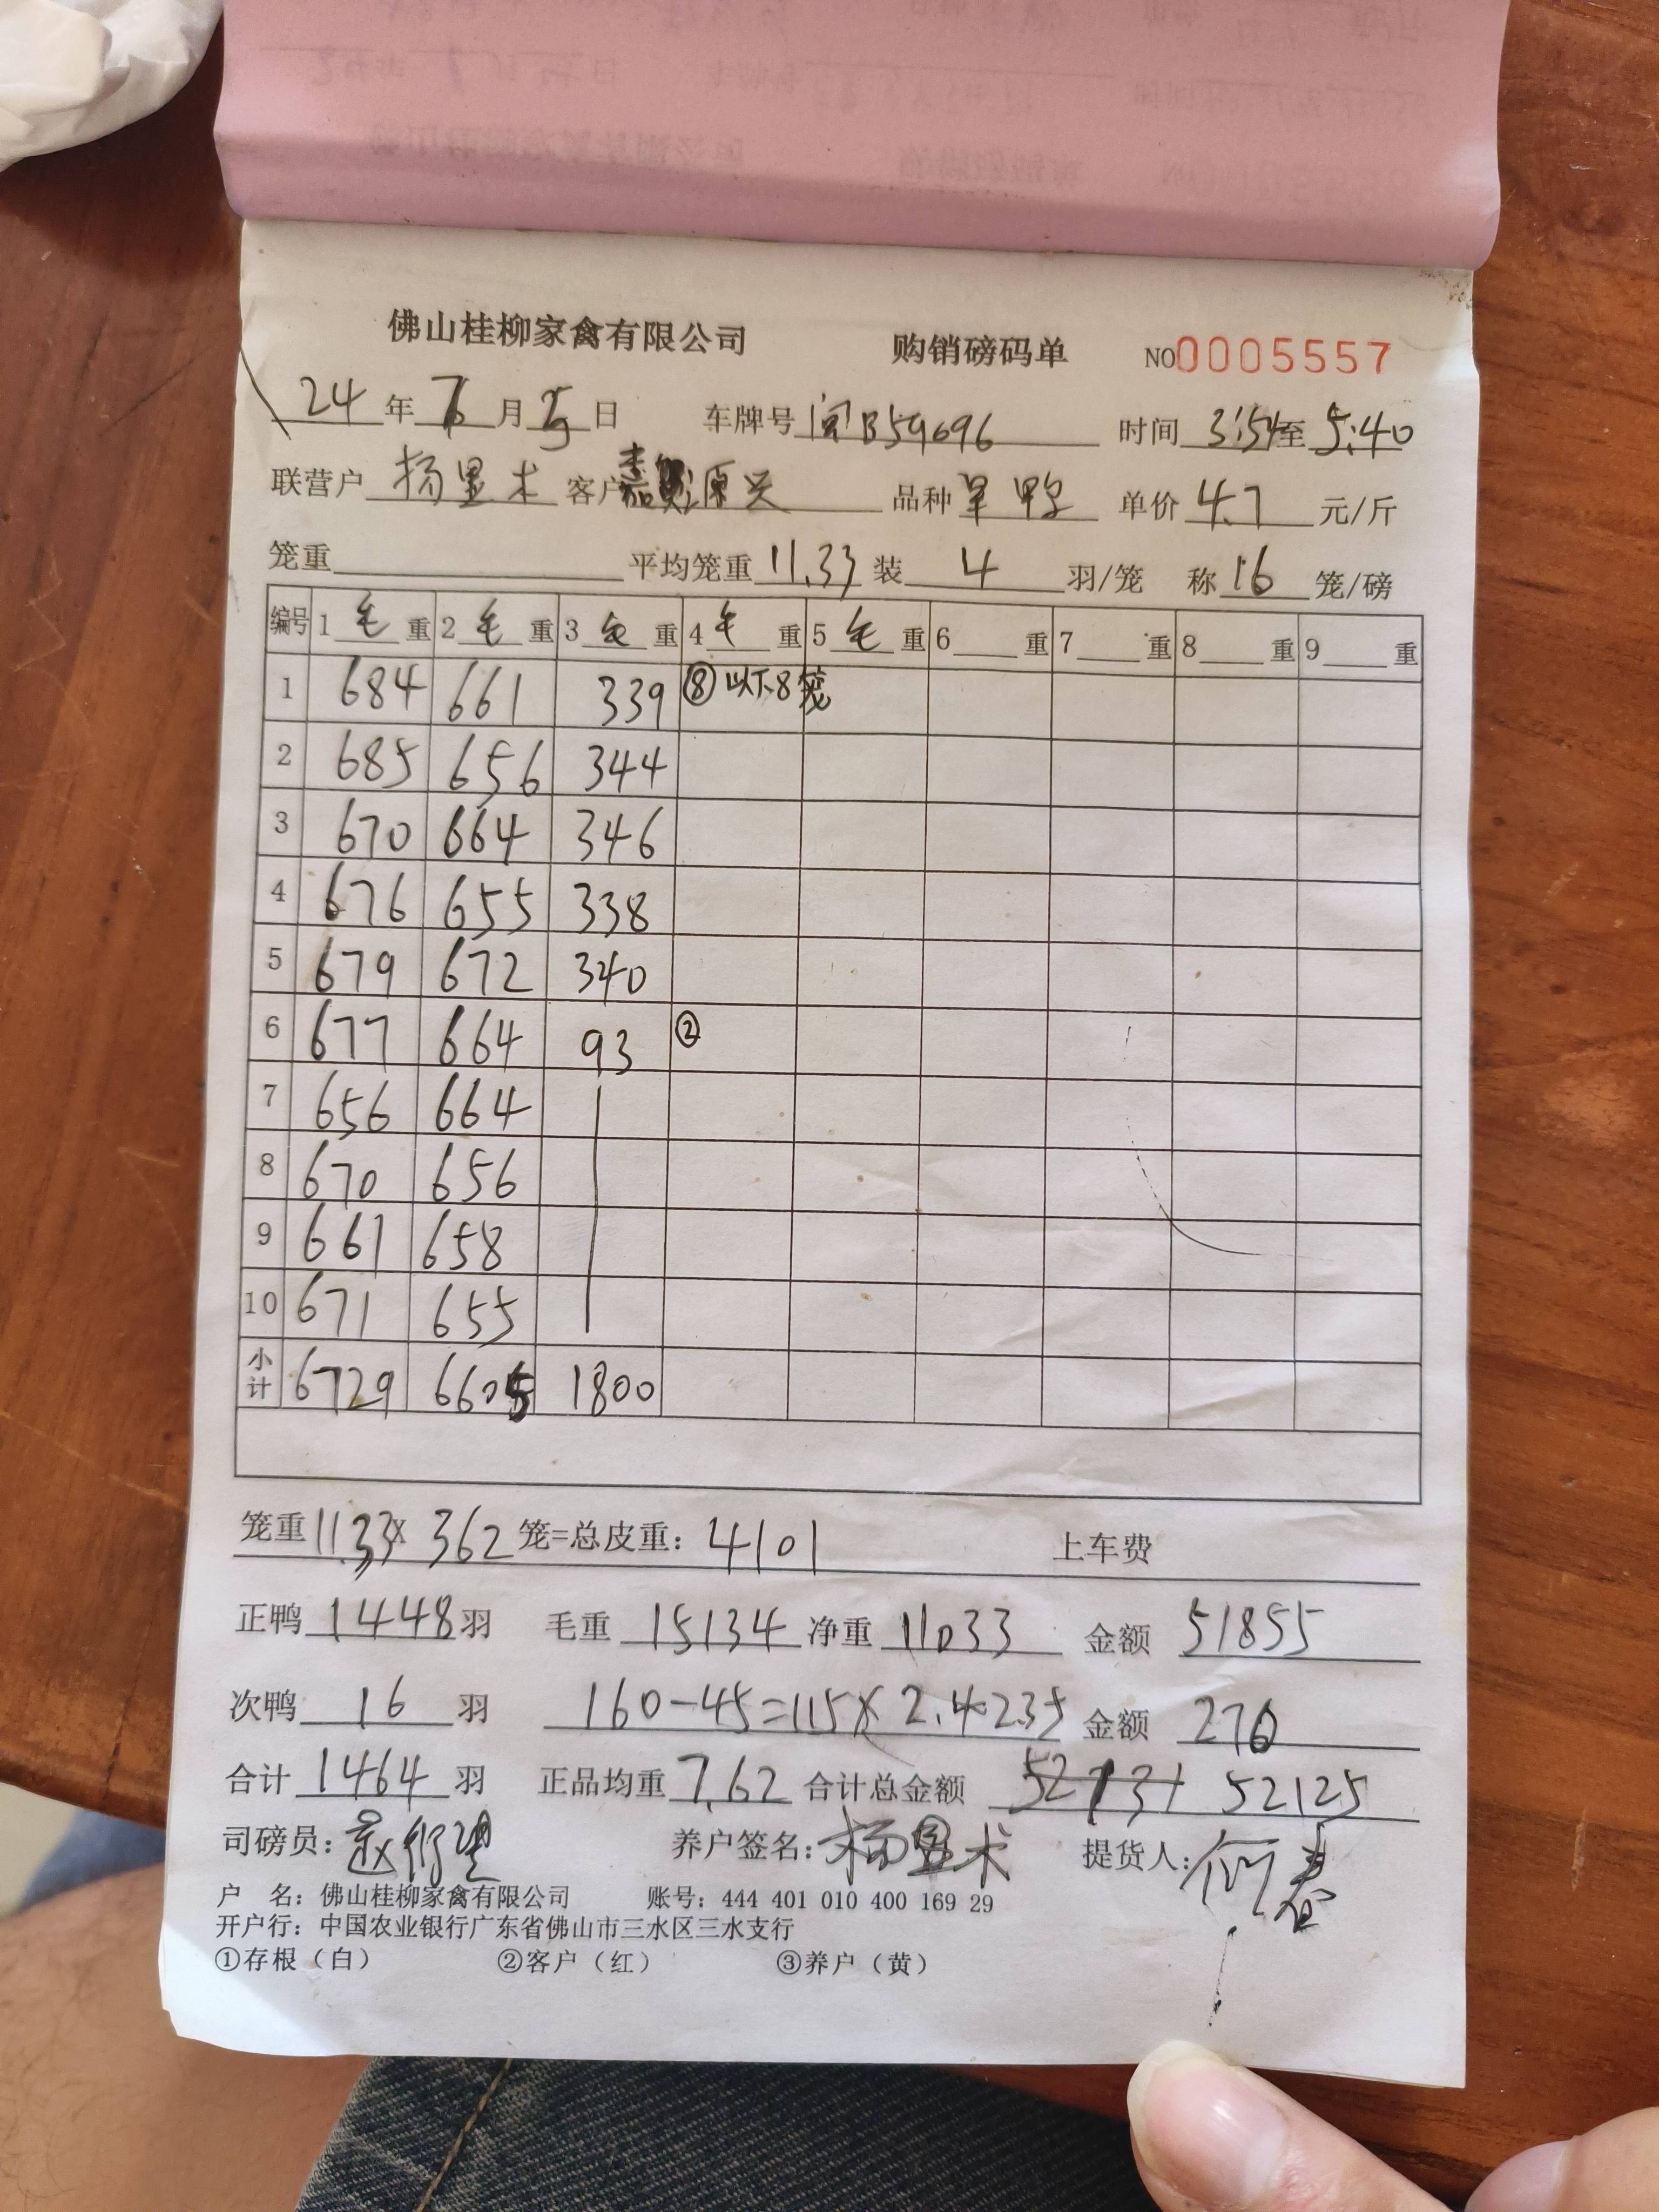 佛山桂柳家禽有限公司 购销磅码单 NO0005557
24年7月5日 车牌号 闽B59696 时间 3:54至5:40
联营户 杨显术 客户 嘉 原兴 品种 旱鸭 单价 4.7 元/斤
笼重 平均笼重 11.33 装 4 羽/笼 称 16 笼/磅
编号 1 毛 重 2 毛 重 3 毛 重 4 毛 重 5 毛 重 6 重 7 重 8 重 9 重
1 684 661 339 ⑧以下8笼
2 685 656 344
3 670 664 346
4 676 655 338
5 679 672 340
6 677 664 93 ②
7 656 664
8 670 656
9 661 658
10 671 655
小计 6729 6605 1800
笼重 11.33 X 362 笼=总皮重: 4101 上车费
正鸭 1448 羽 毛重 15134 净重 11033 金额 51855
次鸭 16 羽 160-45=115X 2.4 235 金额 270
合计 1464 羽 正品均重 7.62 合计总金额 52131 52125
司磅员: 养户签名: 杨显术 提货人: 何春
户 名: 佛山桂柳家禽有限公司 账号: 444 401 010 400 169 29
开户行: 中国农业银行广东省佛山市三水区三水支行
①存根（白） ②客户（红） ③养户（黄）